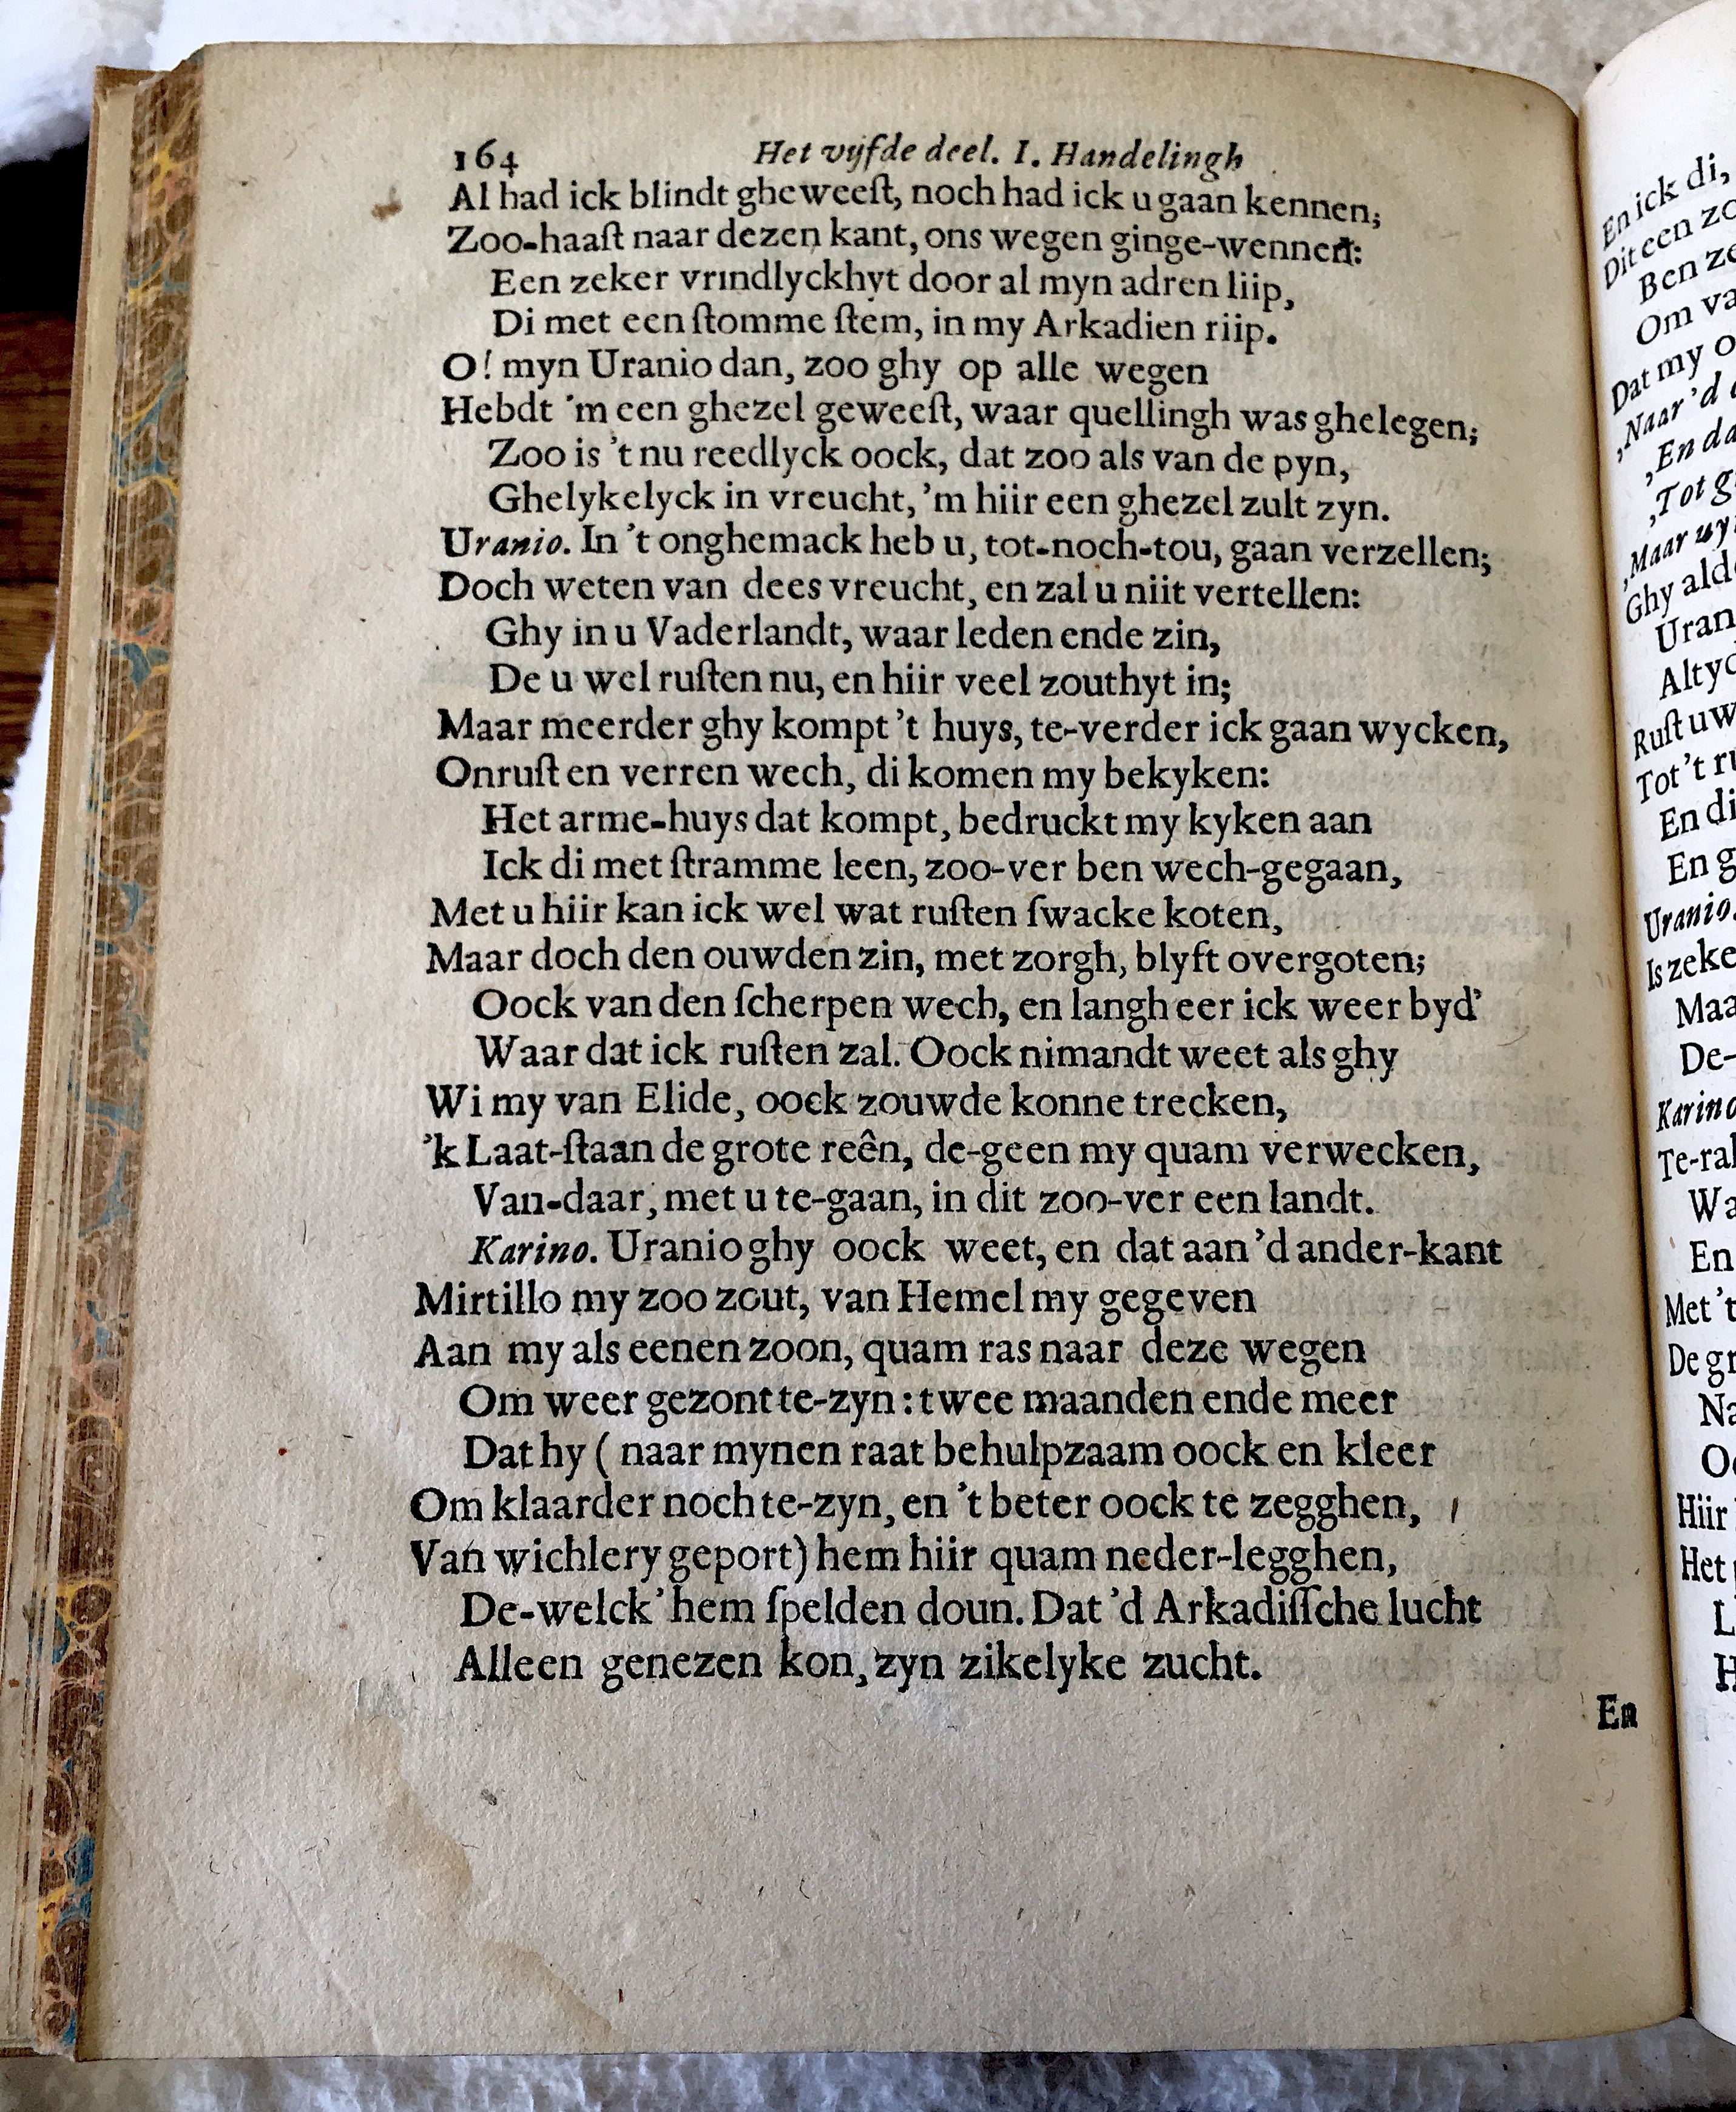 164 Het vyfde deel. I. Handelingh
Al had ick blindt gheweeſt, noch had ick u gaan kennen;
Zoo-haaſt naar dezen kant, ons wegen ginge-wennen:
Een zeker vrindlyckhyt door al myn adren liip,
Di met een ſtomme ſtem, in my Arkadien riip.
O! myn Uranio dan, zoo ghy op alle wegen
Hebdt 'm een ghezel geweeſt, waar quellingh was ghelegen;
Zoo is 't nu reedlyck oock, dat zoo als van de pyn,
Ghelykelyck in vreucht, 'm hiir een ghezel zult zyn.
Uranio. In 't onghemack heb u, tot-noch-tou, gaan verzellen;
Doch weten van dees vreucht, en zal u niit vertellen:
Ghy in u Vaderlandt, waar leden ende zin,
De u wel ruſten nu, en hiir veel zouthyt in;
Maar meerder ghy kompt 't huys, te-verder ick gaan wycken,
Onruſt en verren wech, di komen my bekyken:
Het arme-huys dat kompt, bedruckt my kyken aan
Ick di met ſtramme leen, zoo-ver ben wech-gegaan,
Met u hiir kan ick wel wat ruſten ſwacke koten,
Maar doch den ouwden zin, met zorgh, blyft overgoten;
Oock van den ſcherpen wech, en langh eer ick weer byd'
Waar dat ick ruſten zal. Oock nimandt weet als ghy
Wi my van Elide, oock zouwde konne trecken,
'k Laat-ſtaan de grote reên, de-geen my quam verwecken,
Van-daar, met u te-gaan, in dit zoo-ver een landt.
Karino. Uranio ghy oock weet, en dat aan 'd ander-kant
Mirtillo my zoo zout, van Hemel my gegeven
Aan my als eenen zoon, quam ras naar deze wegen
Om weer gezont te-zyn: twee maanden ende meer
Dat hy ( naar mynen raat behulpzaam oock en kleer
Om klaarder noch te-zyn, en 't beter oock te zegghen,
Van wichlery geport) hem hiir quam neder-legghen,
De-welck' hem ſpelden doun. Dat 'd Arkadiſſche lucht
Alleen genezen kon, zyn zikelyke zucht.
En
En ick di,
Dit een zo
Ben ze
Om va
Dat my o
,Naar 'd
,En da
,Tot g
,Maar
Ghy ald
Uran
Altyd
Ruſt uw
Tot 't r
En di
En g
Uranio.
Is zeke
Maa
De-
Karino
Te-ra
Wa
En
Met 't
De gr
Na
Oo
Hiir
Het
L
H